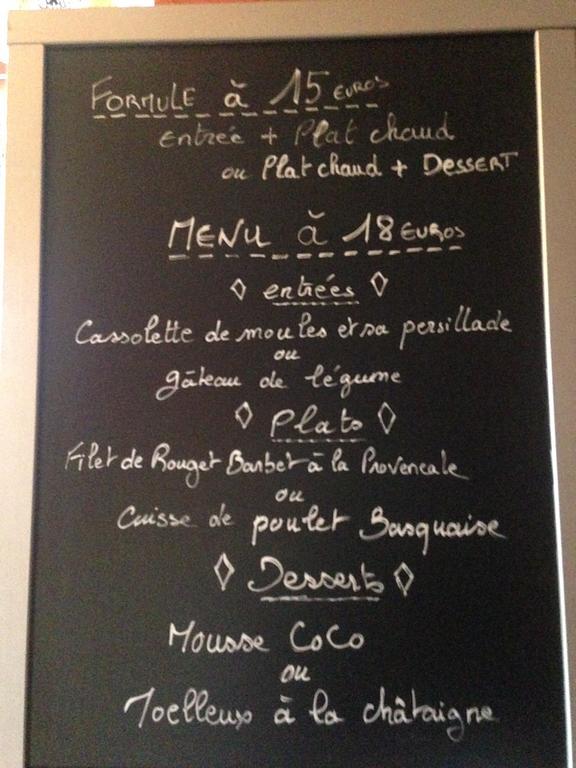 FORMULE à 15 EUROS
entrée + Plat chaud
ou Plat chaud + DESSERT
MENU à 18 EUROS
entrées
Cassolette de moules et sa persillade
ou
gâteau de légume
Plats
Filet de Rouget Barbet à la Provencale
ou
Cuisse de poulet Basquaise
Desserts
Mousse CoCo
ou
Moelleux à la châtaigne